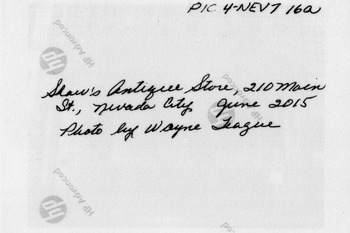 PIC 4-NEV7 16a
Shaw's Antique Store, 210 Main
St., Nevada City June 2015
Photo by Wayne Teague
hp HP Advanced
hp HP Advanced
hp HP Advanced
hp HP Advanced